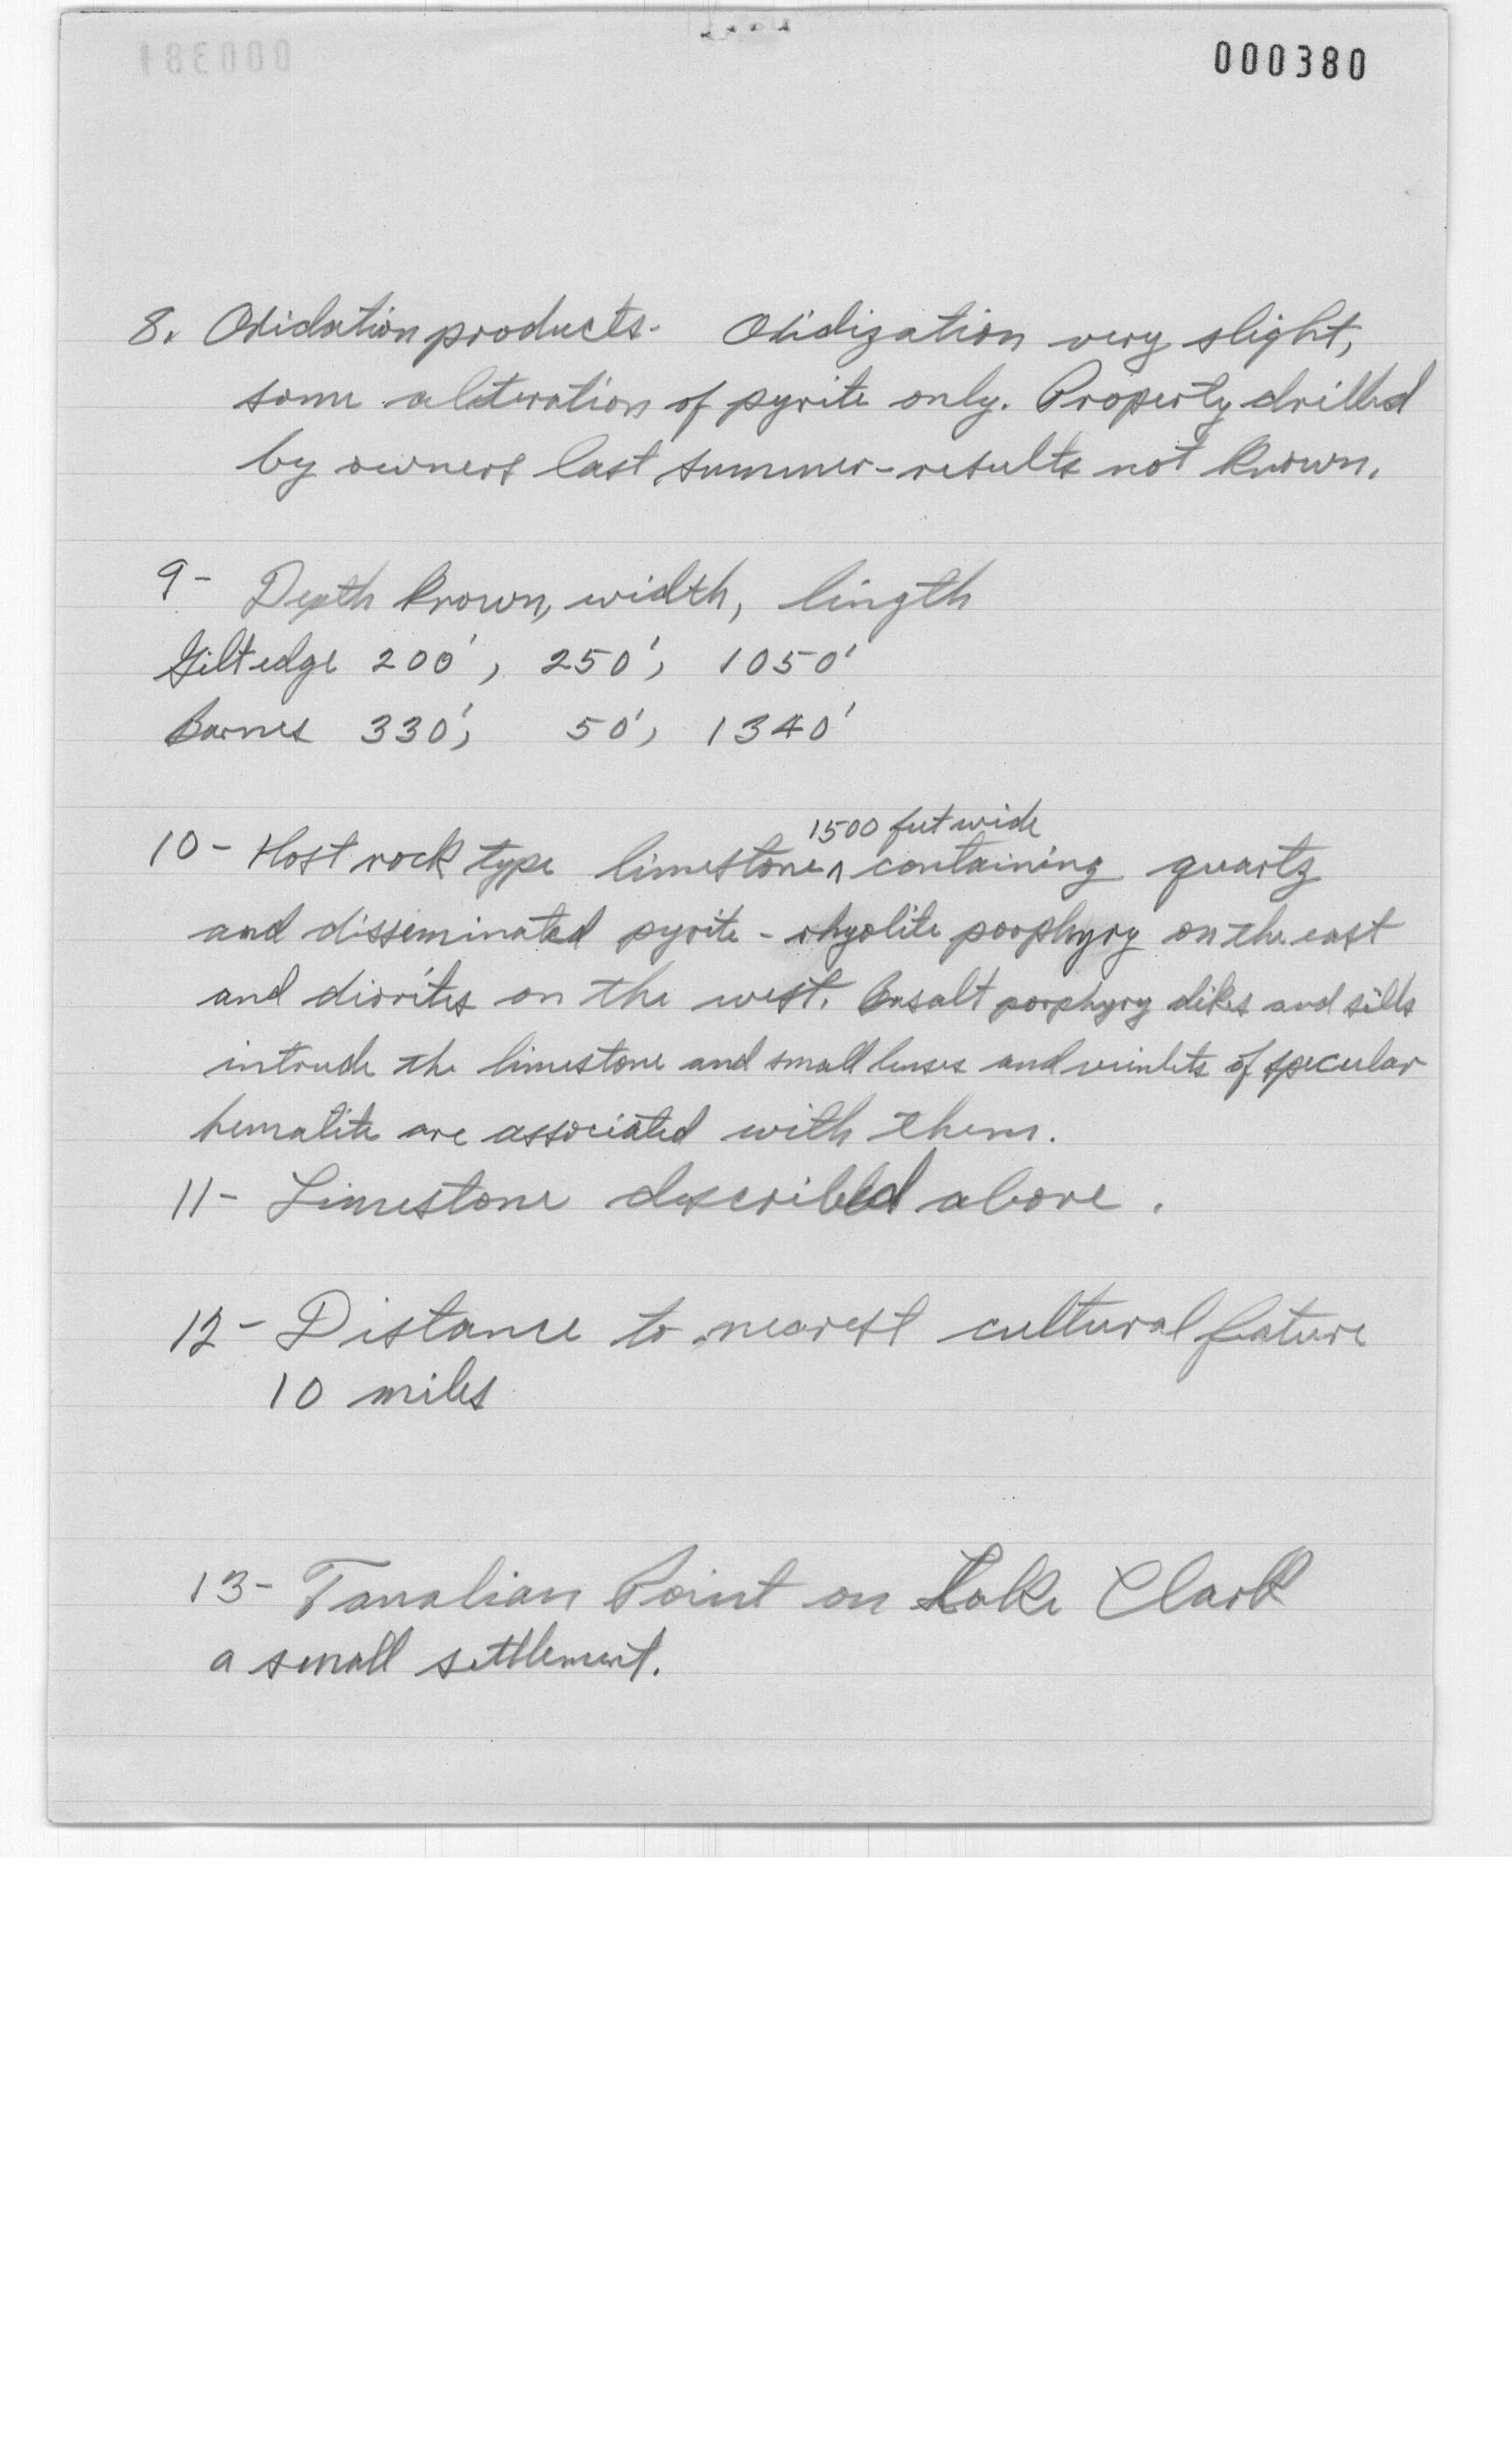 000380
8. Oxidation products- Oxidization very slight,
some aliteration of pyrite only. Property drilled
by owners last summer-results not known.
9- Depth known, width, length
Giltedge 200', 250', 1050'
Barnes 330', 50', 1340'
1500 feet wide
10- Host rock type limestone ^ containing quartz
and disseminated pyrite - rhyolite porphyry on the east
and diorites on the west. Basalt porphyry dikes and sills
intrude the limestone and small lenses and veinlets of specular
hematite are associated with them.
11- Limestone described above.
12- Distance to nearest cultural feature
10 miles
13- Tanalian Point on Lake Clark
a small settlement.